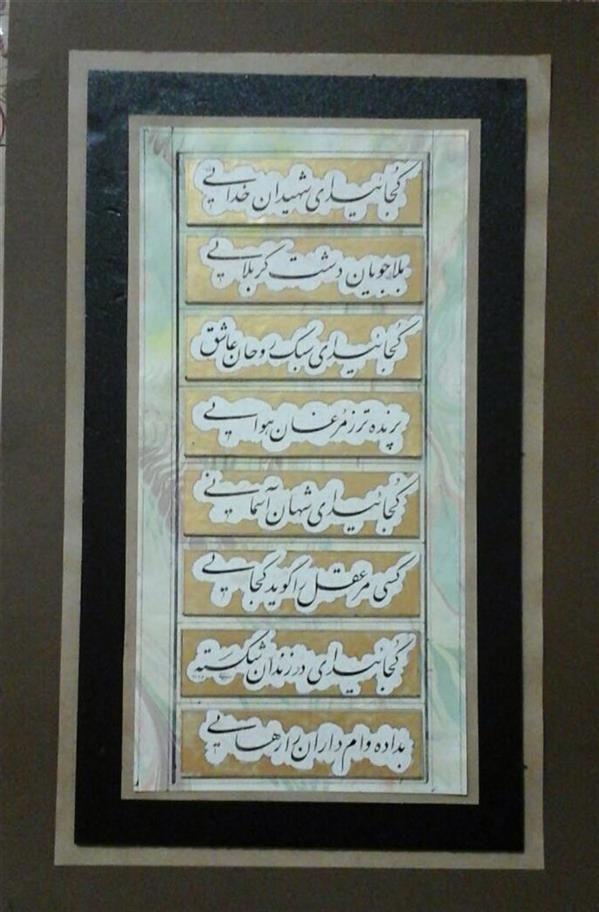 کجائید ای شهیدان خدایی
بلاجویان دشت کربلایی
کجائید ای سبک روحان عاشق
پرنده تر ز مرغان هوایی
کجائید ای شهان آسمانی
کسی مر عقل را گوید کجایی
کجائید ای در زندان شکسته
بداده وام داران را رهایی